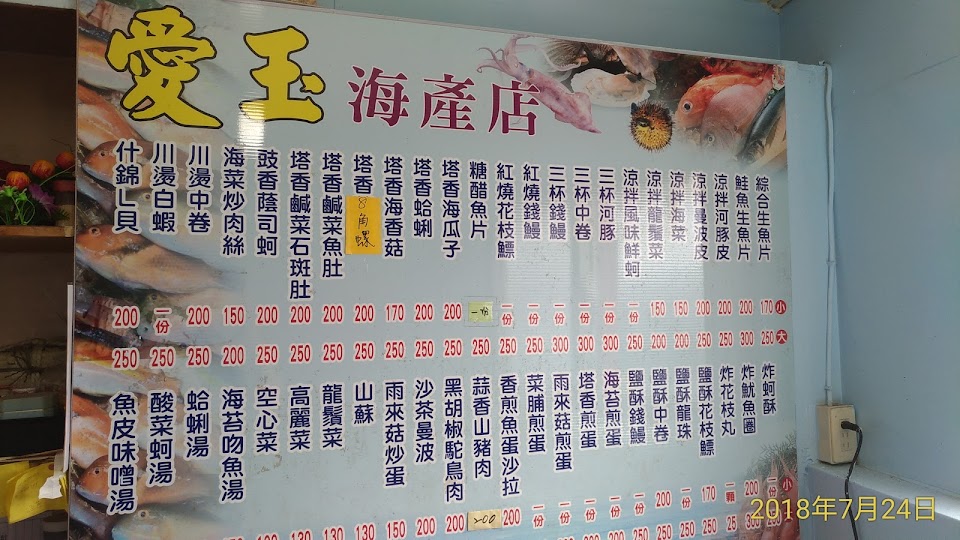 愛玉海產店
綜合生魚片
鮭魚生魚片
涼拌河豚皮
涼拌曼波皮
涼拌海菜
涼拌龍鬚菜
涼拌風味鮮蚵
三杯河豚
三杯中卷
三杯錢鰻
紅燒錢鰻
紅燒花枝鰾
糖醋魚片
塔香海瓜子
塔香蛤蜊
塔香海香菇
塔香8角螺
塔香鹹菜魚肚
塔香鹹菜石斑肚
豉香蔭司蚵
海菜炒肉絲
川燙中卷
川燙白蝦
什錦L貝
200 一份 200 150 200 200 200 200 170 200 200 一份 一份 一份 一份 一份 一份 一份 150 150 200 200 200 170 小
250 250 250 200 250 250 250 250 250 250 250 250 250 250 300 300 300 250 200 200 250 250 300 250 大
炸蚵酥
炸魷魚圈
炸花枝丸
鹽酥花枝鰾
鹽酥龍珠
鹽酥中卷
鹽酥錢鰻
海苔煎蛋
塔香煎蛋
雨來菇煎蛋
菜脯煎蛋
香煎魚蛋沙拉
蒜香山豬肉
黑胡椒駝鳥肉
沙茶曼波
雨來菇炒蛋
山蘇
龍鬚菜
高麗菜
空心菜
海苔吻魚湯
蛤蜊湯
酸菜蚵湯
魚皮味噌湯
100 100 100 100 150 200 200 200 200 一份 一份 一份 一份 一份 200 一份 170 一顆 200 一份 小
2018年7月24日